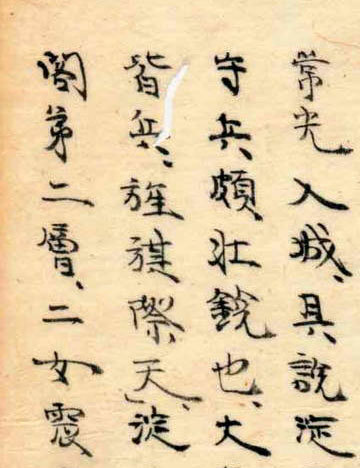 常光入城、具説淀
守兵、頗壮鋭也、大
皆兵、旌旗際天」淀
閣第二層、二女震